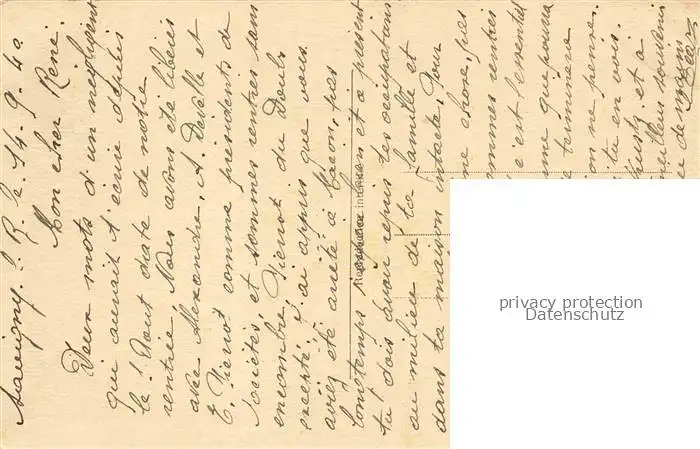 Savigny. S. R. le 14. 9. 40
Mon cher René.
Deux mots d'un négligent
qui aurait dû écrire depuis
le 1 Aout date de notre
rentrée. Nous avons été libérés
avec Alexandre, A. Develle et
E. Pierrot comme présidents de
sociétés, et sommes rentrés sans
encombre, Pierrot du Doubs
excepté, j'ai appris que vous
aviez été arrêté à Macon, pas
longtemps j'espère bien et à présent
tu dois avoir repris tes occupations
au milieu de ta famille et
dans ta maison intacte. Pour
ne chose, que
ommes rentrés
c'est l'essentiel
me que pourra
e terminera
on ne pense.
tu en vois.
et a
meilleur souvenir
ce de
privacy protection
Datenschutz